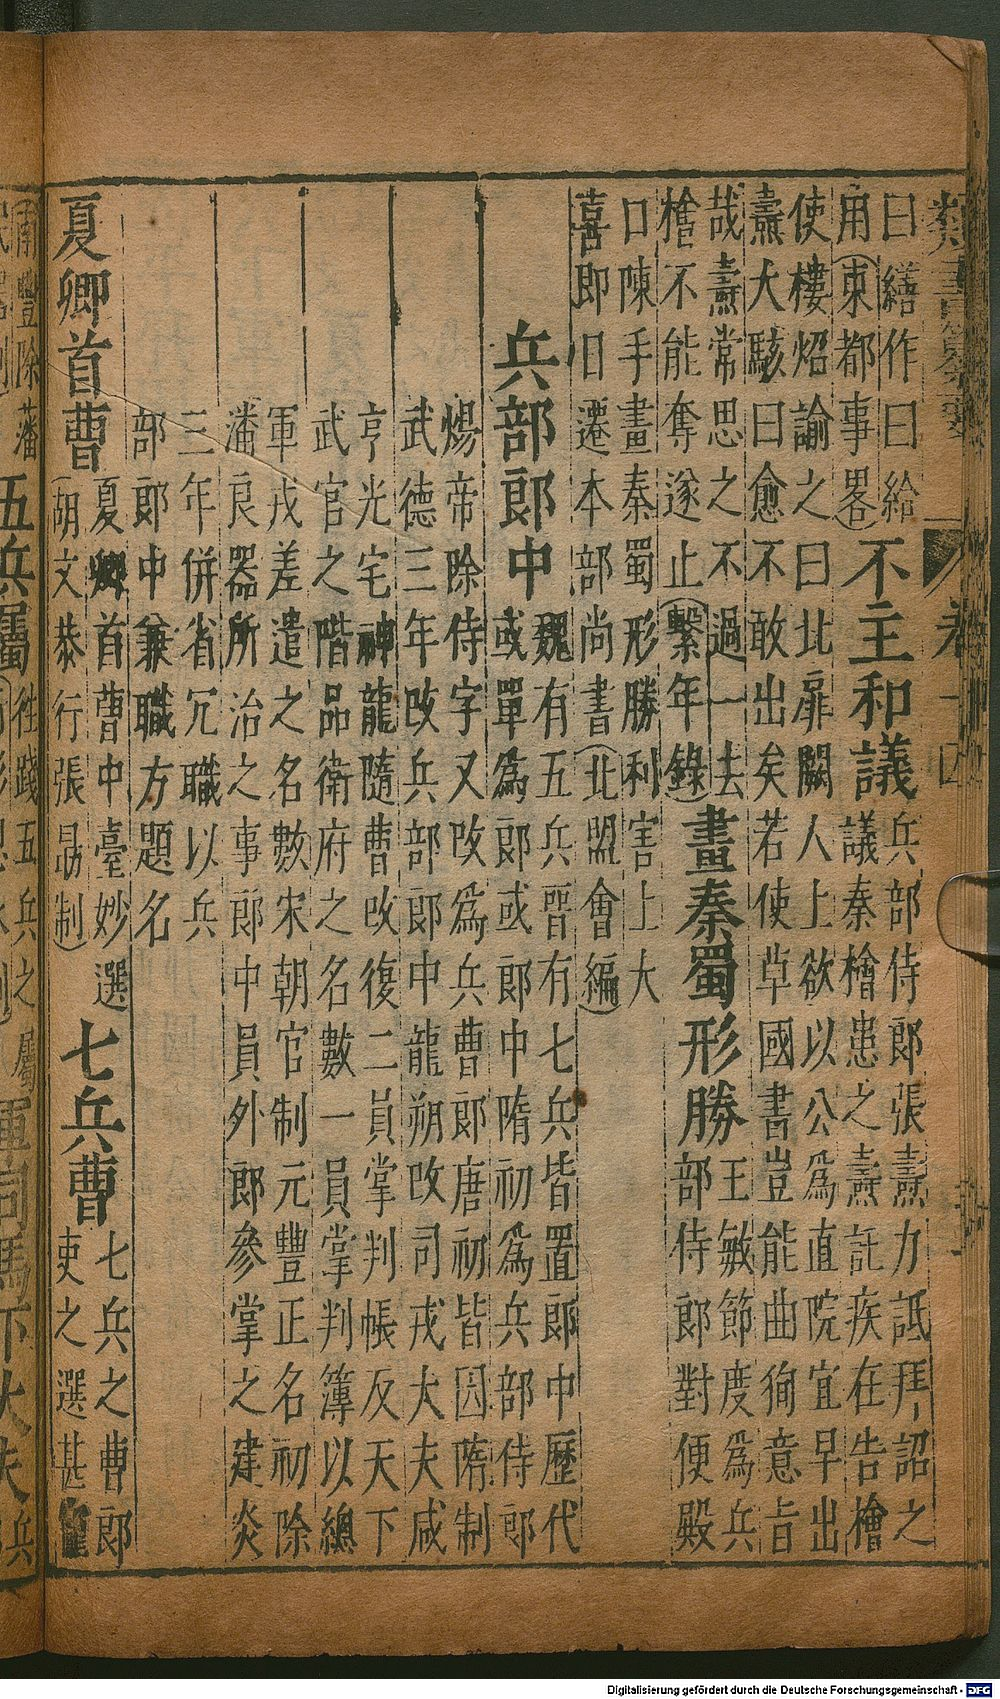 曰繕作曰給
用(東都事畧)不主和議兵部侍郎張燾力詆拜詔之
議秦檜患之燾託疾在告檜
使樓炤諭之曰北扉闕人上欲以公為直院宜早出
燾大駭曰愈不敢出矣若使草國書豈能曲徇意旨
哉燾常思之不過一去
檜不能奪遂止(繫年錄)畫秦蜀形勝王敏節度為兵
部侍郎對便殿
口陳手畫秦蜀形勝利害上大
喜即日遷本部尚書(北盟會編)
兵部郎中魏有五兵晉有七兵皆置郎中歷代
或單為郎或郎中隋初為兵部侍郎
煬帝除侍字又改為兵曹郎唐初皆因隋制
武德三年改兵部郎中龍朔改司戎大夫咸
亨光宅神龍隨曹改復二員掌判帳及天下
武官之階品衛府之名數一員掌判簿以總
軍戎差遣之名數宋朝官制元豐正名初除
潘良器所治之事郎中員外郎參掌之建炎
三年併省冗職以兵
部郎中兼職方題名
夏卿首曹夏卿首曹中臺妙選
(胡文恭行張昷制)七兵曹七兵之曹郎
吏之選甚
Digitalisierung gefördert durch die Deutsche Forschungsgemeinschaft - DFG